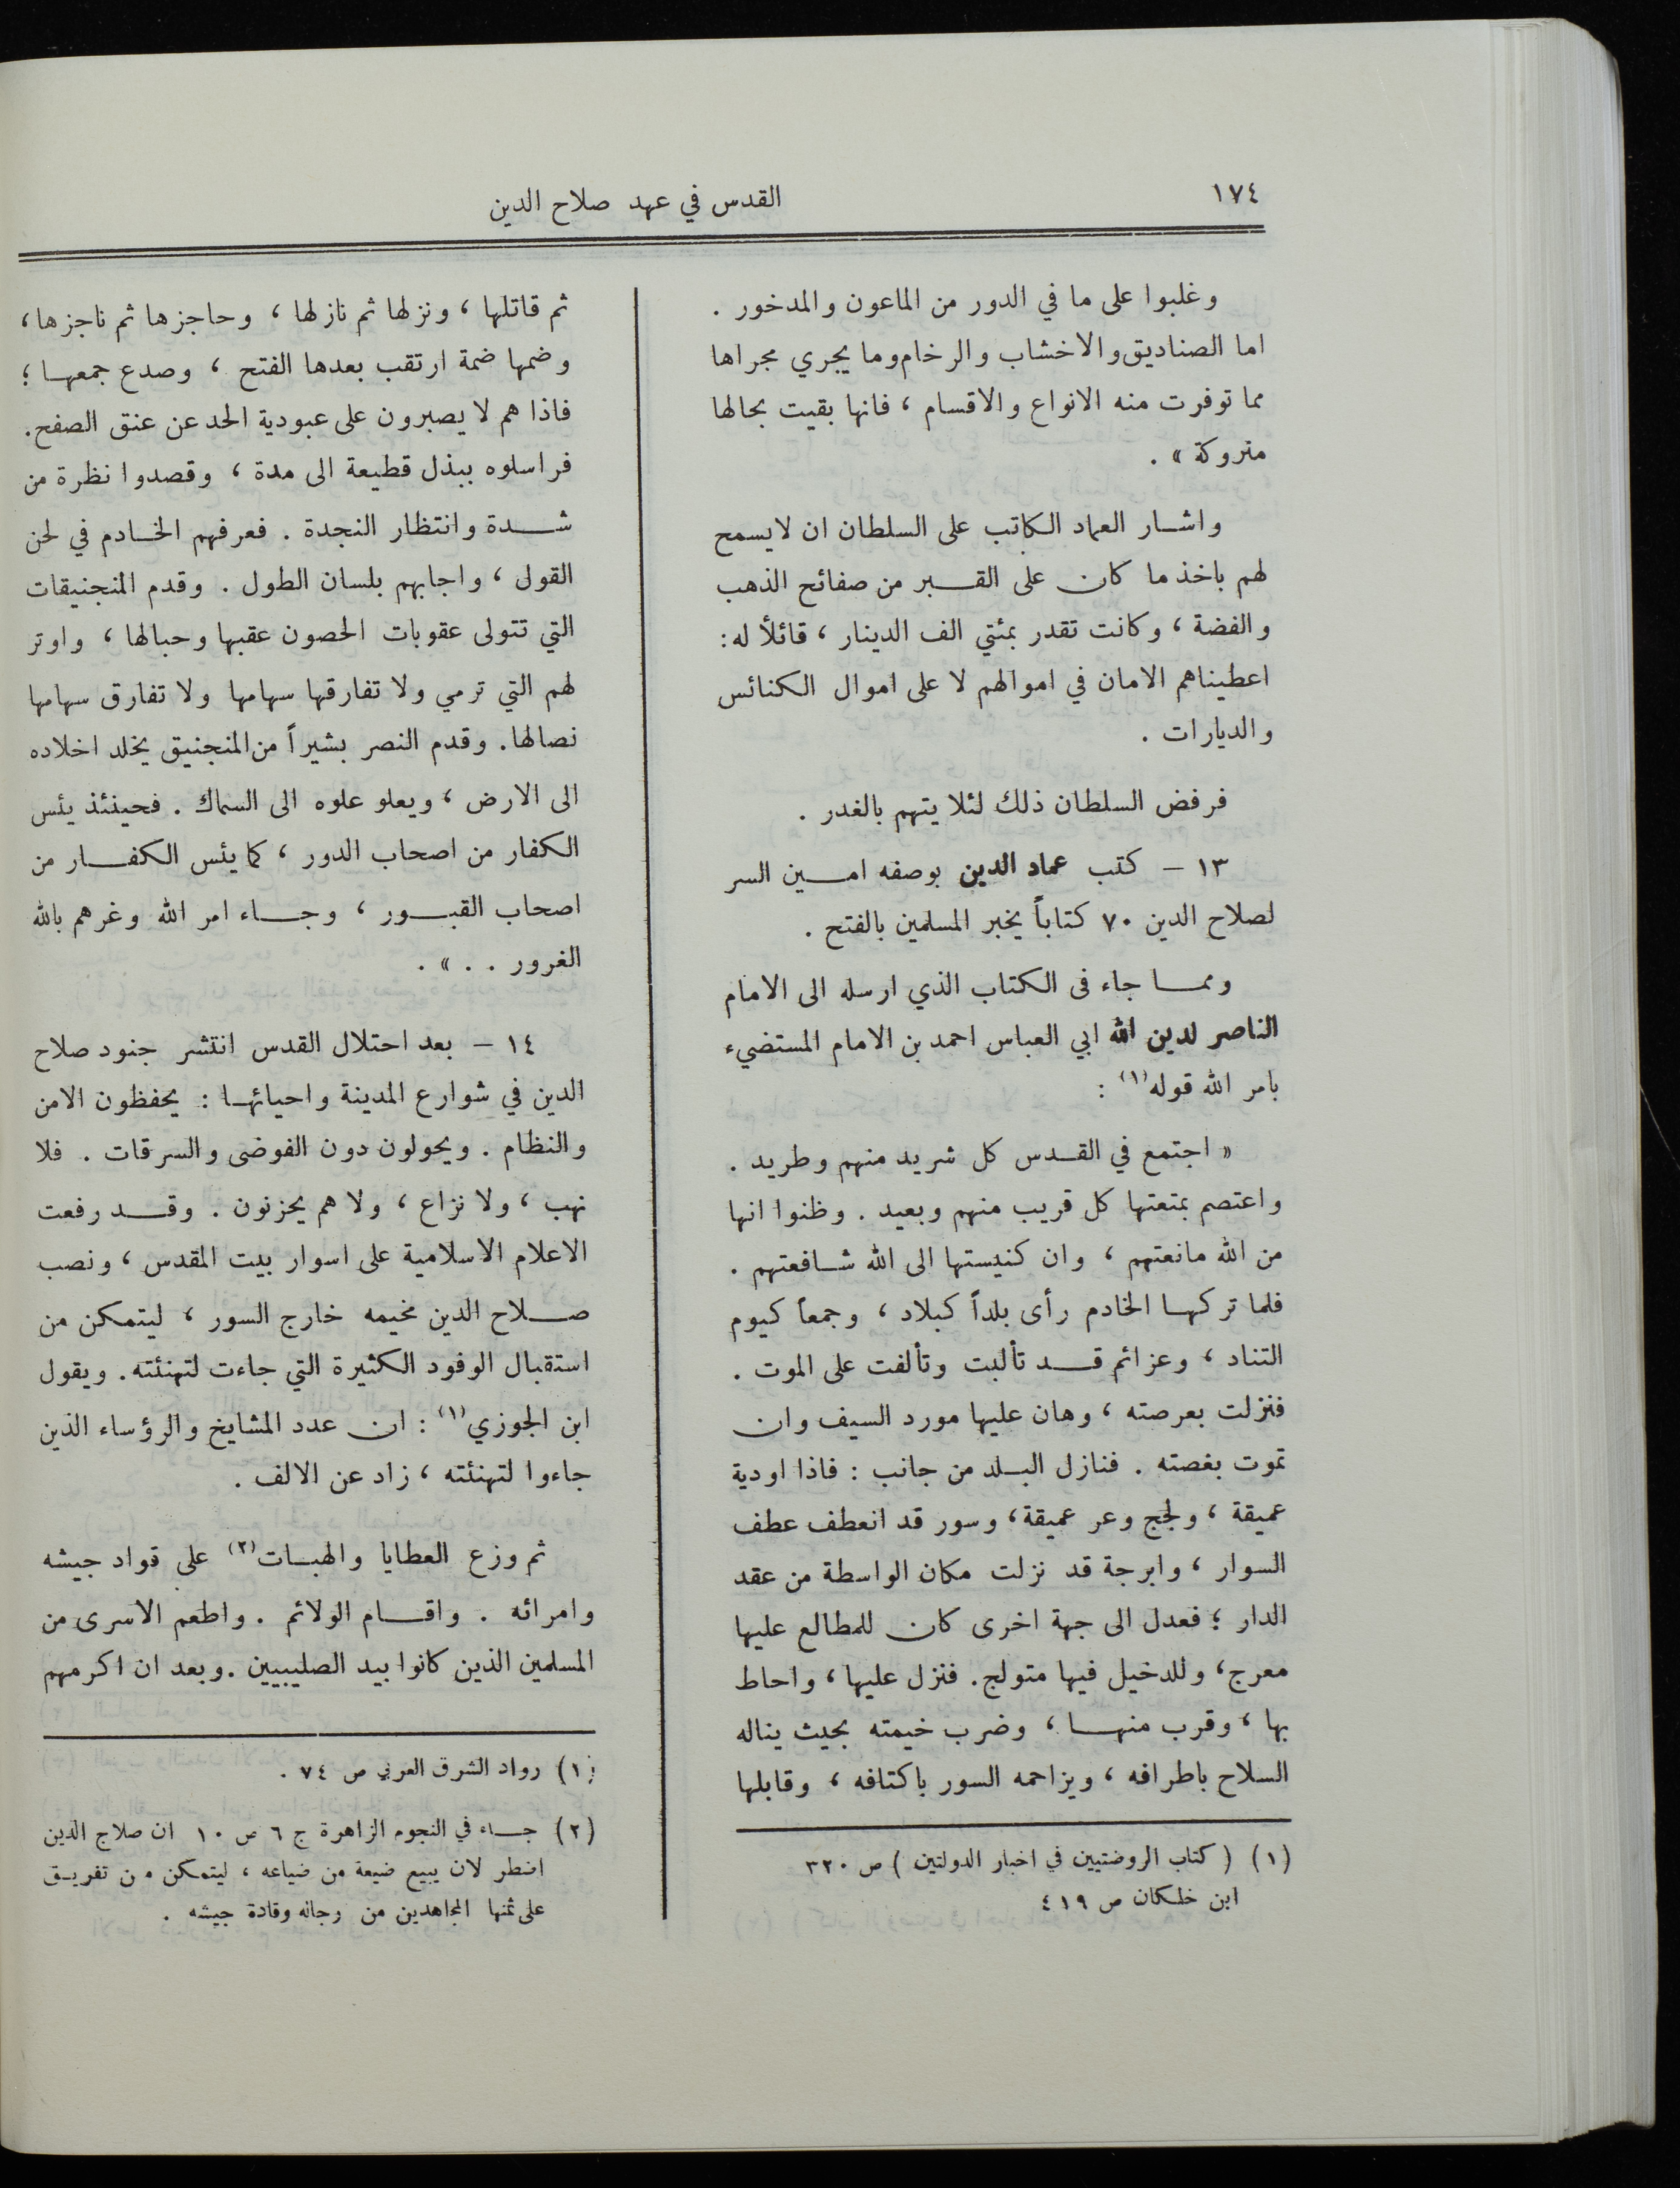 ١٧٤
القدس في عهد صلاح الدين
وغلبوا على ما في الدور من الماعون والمدخور .
اما الصناديق والاخشاب والرخام وما يجري مجراها
مما توفرت منه الانواع والاقسام ، فانها بقيت بحالها
متروكة » .
واشار العماد الكاتب على السلطان ان لا يسمح
لهم باخذ ما كان على القبر من صفائح الذهب
والفضة ، وكانت تقدر بمئتي الف الدينار ، قائلاً له :
اعطيناهم الامان في اموالهم لا على اموال الكنائس
والديارات .
فرفض السلطان ذلك لئلا يتهم بالغدر .
١٣ - كتب عماد الدين بوصفه امين السر
لصلاح الدين ٧٠ كتاباً يخبر المسلمين بالفتح .
ومما جاء فى الكتاب الذي ارسله الى الامام
الناصر لدين الله ابي العباس احمد بن الامام المستضيء
بامر الله قوله (١) :
« اجتمع في القدس كل شريد منهم وطريد .
واعتصم بمتعتها كل قريب منهم وبعيد . وظنوا انها
من الله مانعتهم ، وان كنيستها الى الله شافعتهم .
فلما تركها الخادم رأى بلداً كبلاد ، وجمعاً كيوم
التناد ، وعزائم قد تألبت وتألفت على الموت .
فنزلت بعرصته ، وهان عليها مورد السيف وان
تموت بغصته . فنازل البلد من جانب : فاذا اودية
عميقة ، ولجج وعر عميقة ، وسور قد انعطف عطف
السوار ، وابرجة قد نزلت مكان الواسطة من عقد
الدار ؛ فعدل الى جهة اخرى كان للمطالع عليها
معرج ، وللدخيل فيها متولج . فنزل عليها ، واحاط
بها ، وقرب منها ، وضرب خيمته بحيث يناله
السلاح باطرافه ، ويزاحمه السور باكتافه ، وقابلها
(١) ( كتاب الروضتيين في اخبار الدولتين ) ص ٣٢٠
ابن خلكان ص ٤١٩
ثم قاتلها ، ونزلها ثم نازلها ، وحاجزها ثم ناجزها ،
وضمها ضمة ارتقب بعدها الفتح ، وصدع جمعها ؛
فاذا هم لا يصبرون على عبودية الحد عن عنق الصفح .
فراسلوه ببذل قطيعة الى مدة ، وقصدوا نظرة من
شدة وانتظار النجدة . فعرفهم الخادم في لحن
القول ، واجابهم بلسان الطول . وقدم المنجنيقات
التي تتولى عقوبات الحصون عقبها وحبالها ، واوتر
لهم التي ترمي ولا تفارقها سهامها ولا تفارق سهامها
نصالها . وقدم النصر بشيراً من المنجنيق يخلد اخلاده
الى الارض ، ويعلو علوه الى السماك . فحينئذ يئس
الكفار من اصحاب الدور ، كما يئس الكفار من
اصحاب القبور ، وجاء امر الله وغرهم بالله
الغرور . . » .
١٤ - بعد احتلال القدس انتشر جنود صلاح
الدين في شوارع المدينة واحيائها : يحفظون الامن
والنظام . ويحولون دون الفوضى والسرقات . فلا
نهب ، ولا نزاع ، ولا هم يحزنون . وقد رفعت
الاعلام الاسلامية على اسوار بيت المقدس ، ونصب
صلاح الدين مخيمه خارج السور ، ليتمكن من
استقبال الوفود الكثيرة التي جاءت لتهنئته . ويقول
ابن الجوزي (١) : ان عدد المشايخ والرؤساء الذين
جاءوا لتهنئته ، زاد عن الالف .
ثم وزع العطايا والهبات (٢) على قواد جيشه
وامرائه . واقام الولائم . واطعم الاسرى من
المسلمين الذين كانوا بيد الصليبيين . وبعد ان اكرمهم
(١) رواد الشرق العربي ص ٧٤ .
(٢) جاء في النجوم الزاهرة ج ٦ ص ١٠ ان صلاح الدين
اضطر لان يبيع ضيعة من ضياعه ، ليتمكن من تفريق
على ثمنها المجاهدين من رجاله وقادة جيشه .